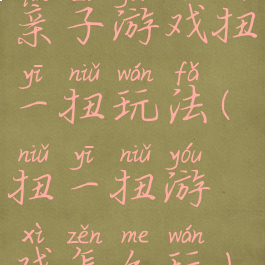 亲子游戏扭
yī niǔ wán fǎ
一扭玩法(
niǔ yī niǔ yóu
扭一扭游
xì zěn me wán
戏怎么玩)